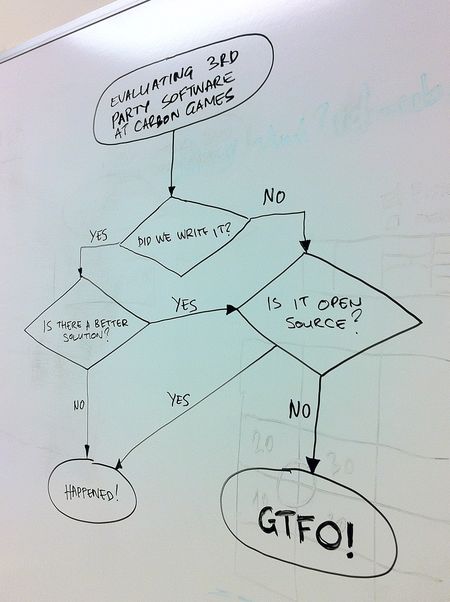 EVALUATING 3RD
PARTY SOFTWARE
AT CARBON GAMES
NO
YES
DID WE WRITE IT?
IS THERE A BETTER
SOLUTION?
YES
IS IT OPEN
SOURCE?
NO
YES
NO
HAPPENED!
GTFO!
20
30